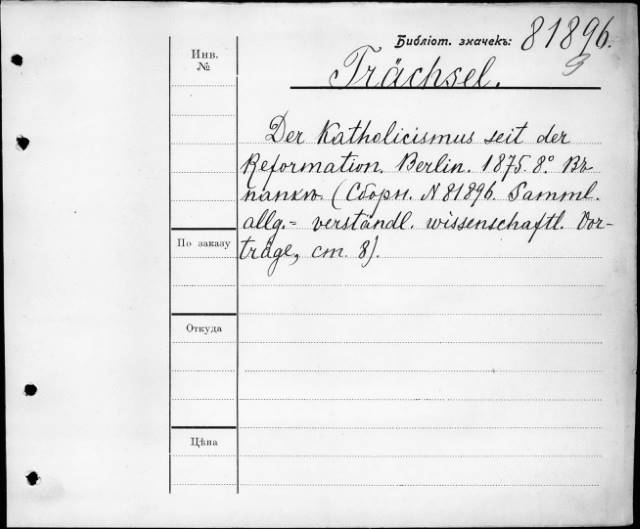 Библіот. значекъ: 81896.
3
Инв.
№
Trächsel.
Der Katholicismus seit der
Reformation. Berlin. 1875. 8°. Въ
папкѣ. (Сборн. N 81896. Samml.
allg.= verständl. wissenschaftl. Vor-
träge, ст. 8).
По заказу
Откуда
Цѣна